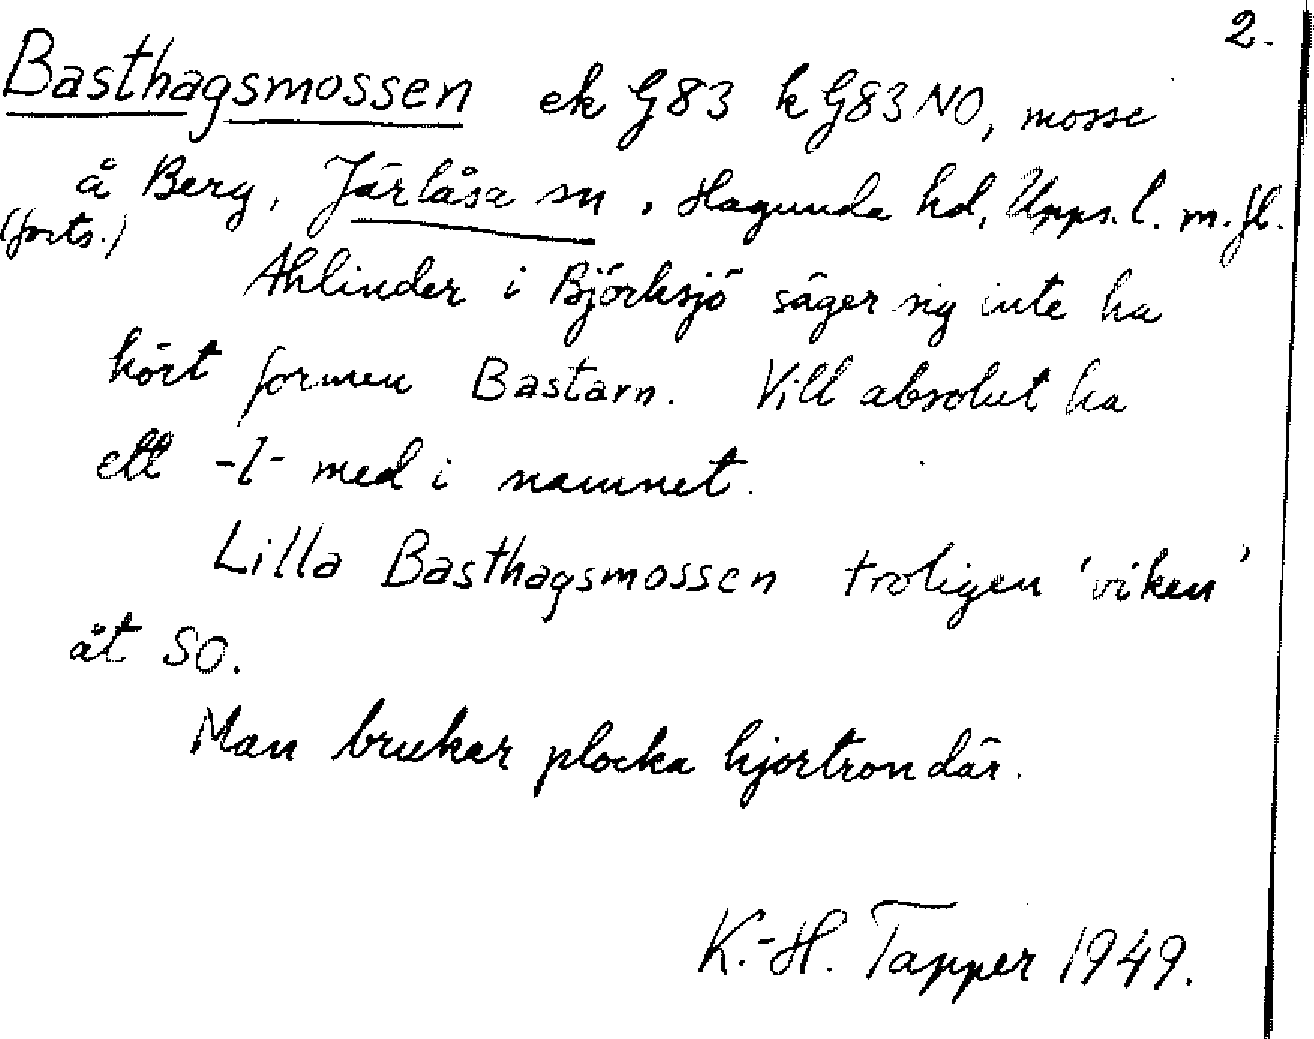 2.
Basthagsmossen ek G83 k G83 NO, mosse
å Berg, Järlåsa sn, Hagunda hd, Upps. l. m. fl.
(forts.)
Ahlinder i Björksjö säger sig inte ha
hört formen Bastarn. Vill absolut ha
ett -l- med i namnet.
Lilla Basthagsmossen troligen 'viken'
åt SO.
Man brukar plocka hjortron där.
K.-H. Tapper 1949.